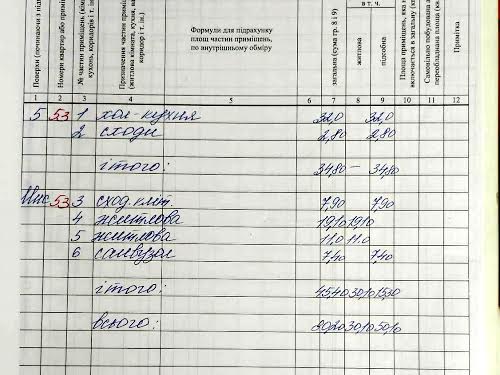 Поверхи (починаючи з під
Номери квартир або примі
№ частин приміщень (кімн
кухонь, коридорів і т. ін.)
Призначення частин приміщ
(житлова кімната, кухня, ва
коридор і т. ін.)
Формули для підрахунку
площ частин приміщень,
по внутрішньому обміру
загальна (сума гр. 8 і 9)
в т. ч.
житлова
підсобна
Площа приміщень, яка н
включається в загальну (к
Самовільно побудована а
переобладнана площа (к
Примітка
1 2 3 4 5 6 7 8 9 10 11 12
5 53 1 хол-кухня 32,0 32,0
2 сходи 2,80 2,80
ітого: 34,80 — 34,80
53 3 сход. кліт. 7,90 7,90
4 житлова 19,10 19,10
5 житлова 11,0 11.0
6 санвузол 7,40 7,40
ітого: 45,40 30,10 15,30
всього: 30,10 50,10